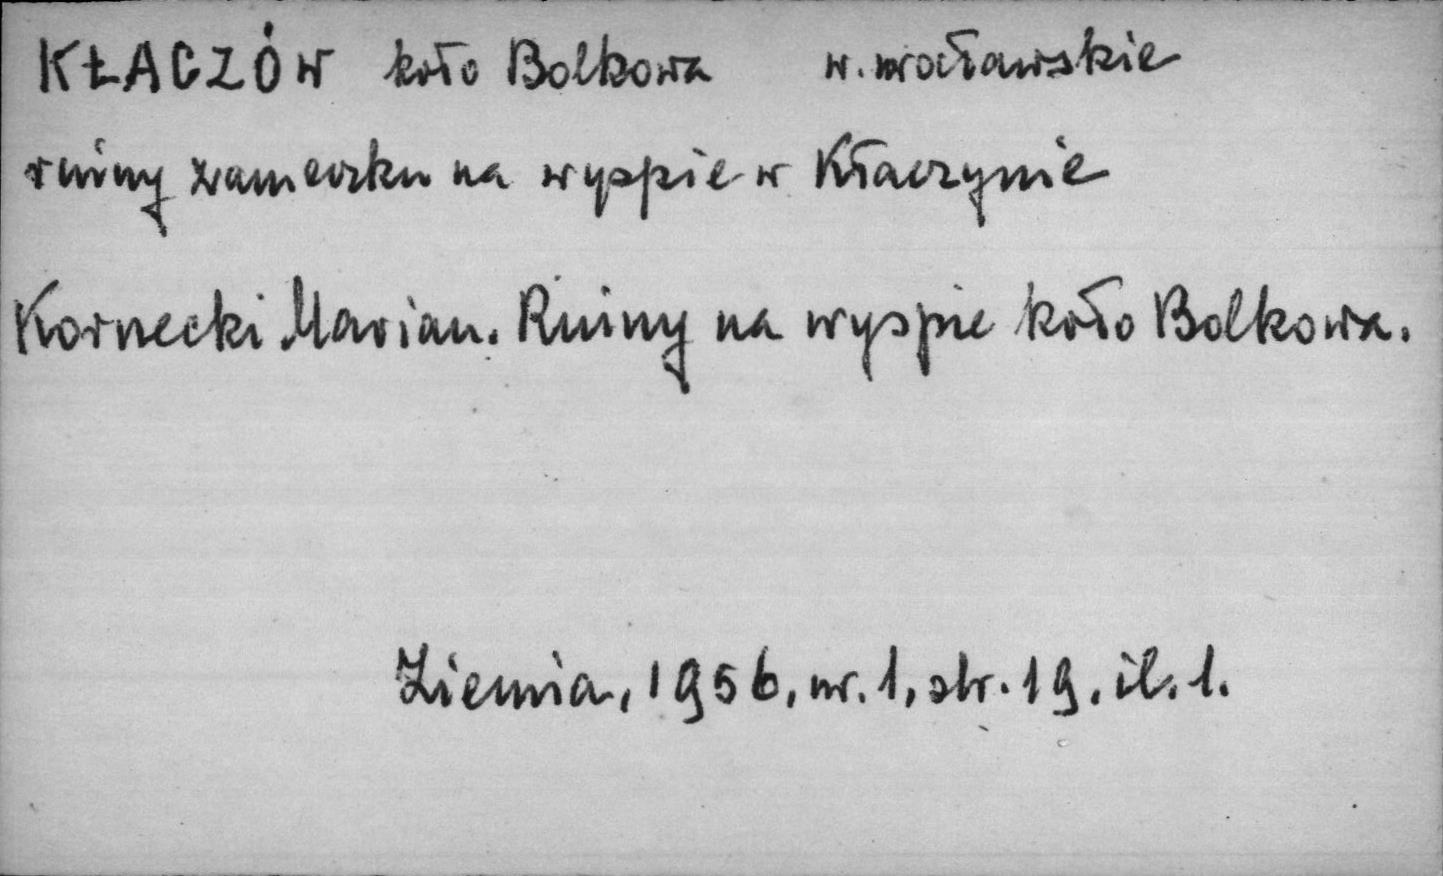 KŁACZÓW koło Bolkowa w. wrocławskie
ruiny zameczku na wyspie w Kłaczynie
Kornecki Marian. Ruiny na wyspie koło Bolkowa.
Ziemia, 1956, nr. 1, str. 19, il. 1.